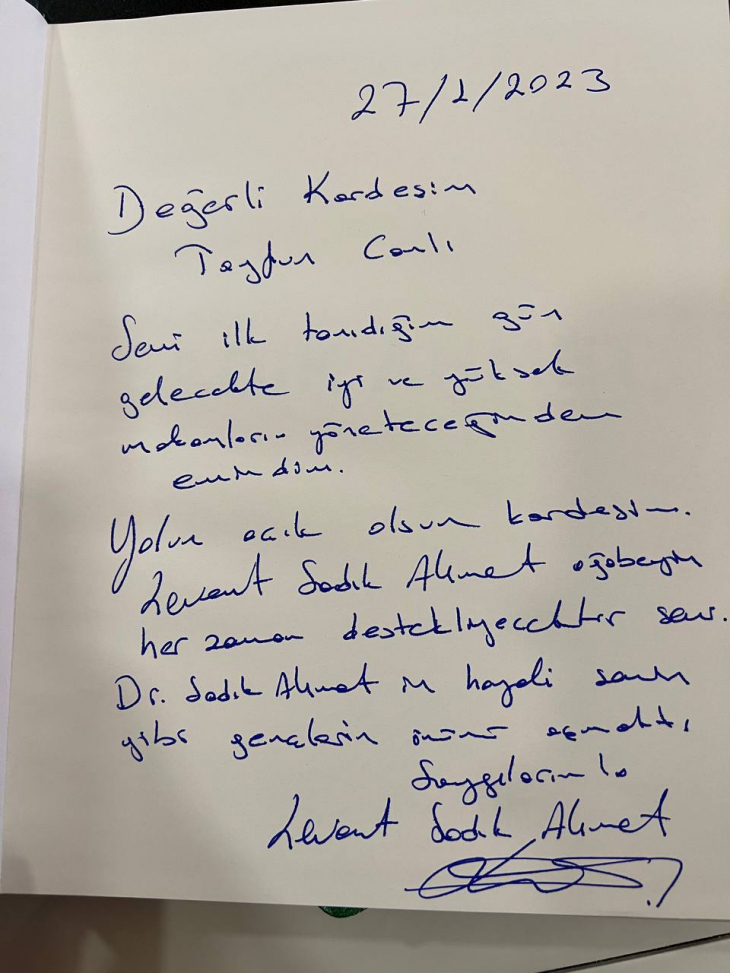 27/1/2023
Değerli Kardeşim
Tayfun Canlı
Seni ilk tanıdığım gün
gelecekte iyi ve yüksek
makamların yöneteceğinden
emindim.
Yolun açık olsun kardeşim.
Levent Sadık Ahmet ağabeyin
her zaman destekliyecektir seni.
Dr. Sadık Ahmet in hayali senin
gibi gençlerin önünü açmaktı
Saygılarımla
Levent Sadık Ahmet